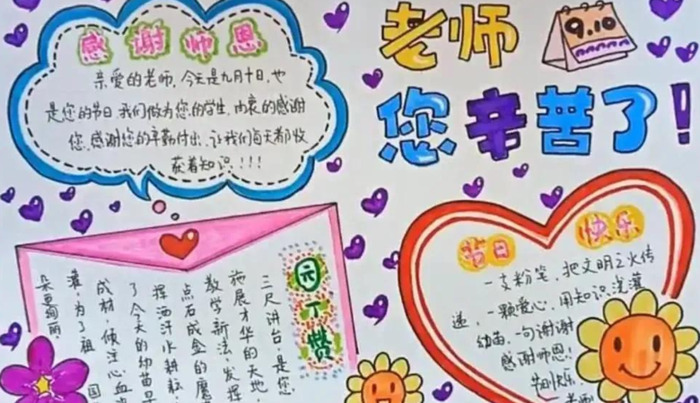 感谢师恩
亲爱的老师,今天是九月十日,也
是您的节日,我们做为您的学生,由衷的感谢
您,感谢您的辛勤付出,让我们每天都收
获着知识!!!
老师
9.10
您辛苦了!
园丁赞
三尺讲台,是您
施展才华的天地,
教学新法,发挥
点石成金的魔
挥洒汗水耕耘
了今天的幼苗早
成材,倾注心血
灌,为了祖国
朵更绚丽.
节日快乐
一支粉笔,把文明之火传
递,一颗爱心,用知识浇灌
幼苗,一句谢谢
感谢师恩!
节日快乐.
老师